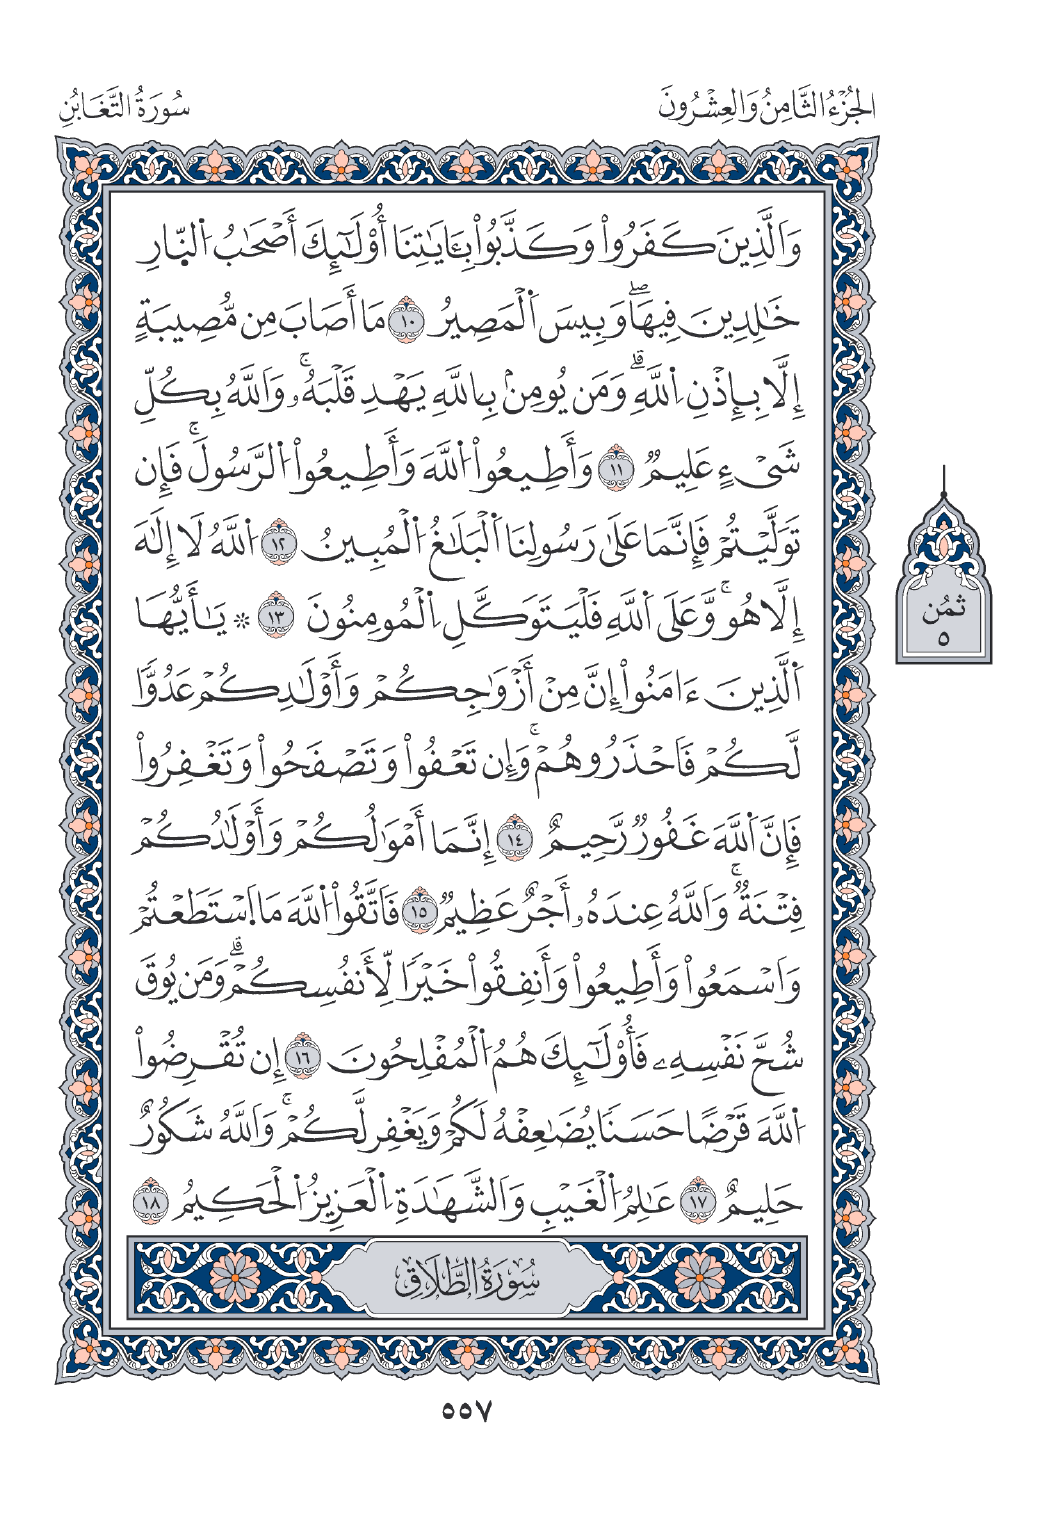 الجُزْءُ الثَّامِنُ وَالعِشْرُونَ
سُورَةُ التَّغَابُنِ
وَالَّذِينَ كَفَرُواْ وَكَذَّبُواْ بِـَٔايَٰتِنَا أُوْلَٰٓئِكَ أَصْحَٰبُ اُ۬لنّ۪ارِ
خَٰلِدِينَ فِيهَاۖ وَبِيسَ اَ۬لْمَصِيرُ ١٠ مَا أَصَابَ مِن مُّصِيبَةٍ
إِلَّا بِإِذْنِ اِ۬للَّهِۗ وَمَن يُومِنۢ بِاللَّهِ يَهْدِ قَلْبَهُۥۚ وَاَللَّهُ بِكُلِّ
شَيْءٍ عَلِيمٌ ١١ وَأَطِيعُواْ اُ۬للَّهَ وَأَطِيعُواْ اُ۬لرَّسُولَۚ فَإِن
تَوَلَّيْتُمْ فَإِنَّمَا عَلَىٰ رَسُولِنَا اَ۬لْبَلَٰغُ اُ۬لْمُبِينُ ١٢ اُ۬للَّهُ لَا إِلَٰهَ
إِلَّا هُوَۚ وَعَلَى اَ۬للَّهِ فَلْيَتَوَكَّلِ اِ۬لْمُومِنُونَ ١٣ ۞ يَٰأَيُّهَا
اَ۬لَّذِينَ ءَامَنُواْ إِنَّ مِنْ أَزْوَٰجِكُمْ وَأَوْلَٰدِكُمْ عَدُوّٗا
لَّكُمْ فَاَحْذَرُوهُمْۚ وَإِن تَعْفُواْ وَتَصْفَحُواْ وَتَغْفِرُواْ
فَإِنَّ اَ۬للَّهَ غَفُورٌ رَّحِيمٌ ١٤ إِنَّمَا أَمْوَٰلُكُمْ وَأَوْلَٰدُكُمْ
فِتْنَةٌۚ وَاَللَّهُ عِندَهُۥ أَجْرٌ عَظِيمٌ ١٥ فَاَتَّقُواْ اُ۬للَّهَ مَا اَ۪سْتَطَعْتُمْ
وَاَسْمَعُواْ وَأَطِيعُواْ وَأَنفِقُواْ خَيْرٗا لِّأَنفُسِكُمْۗ وَمَن يُوقَ
شُحَّ نَفْسِهِۦ فَأُوْلَٰٓئِكَ هُمُ اُ۬لْمُفْلِحُونَ ١٦ إِن تُقْرِضُواْ
اُ۬للَّهَ قَرْضًا حَسَنٗا يُضَٰعِفْهُ لَكُمْ وَيَغْفِر لَّكُمْۚ وَاَللَّهُ شَكُورٌ
حَلِيمٌ ١٧ عَٰلِمُ اُ۬لْغَيْبِ وَاَلشَّهَٰدَةِ اِ۬لْعَزِيزُ اُ۬لْحَكِيمُ ١٨
سُورَةُ الطَّلَاقِ
ثمُن
٥
٥٥٧